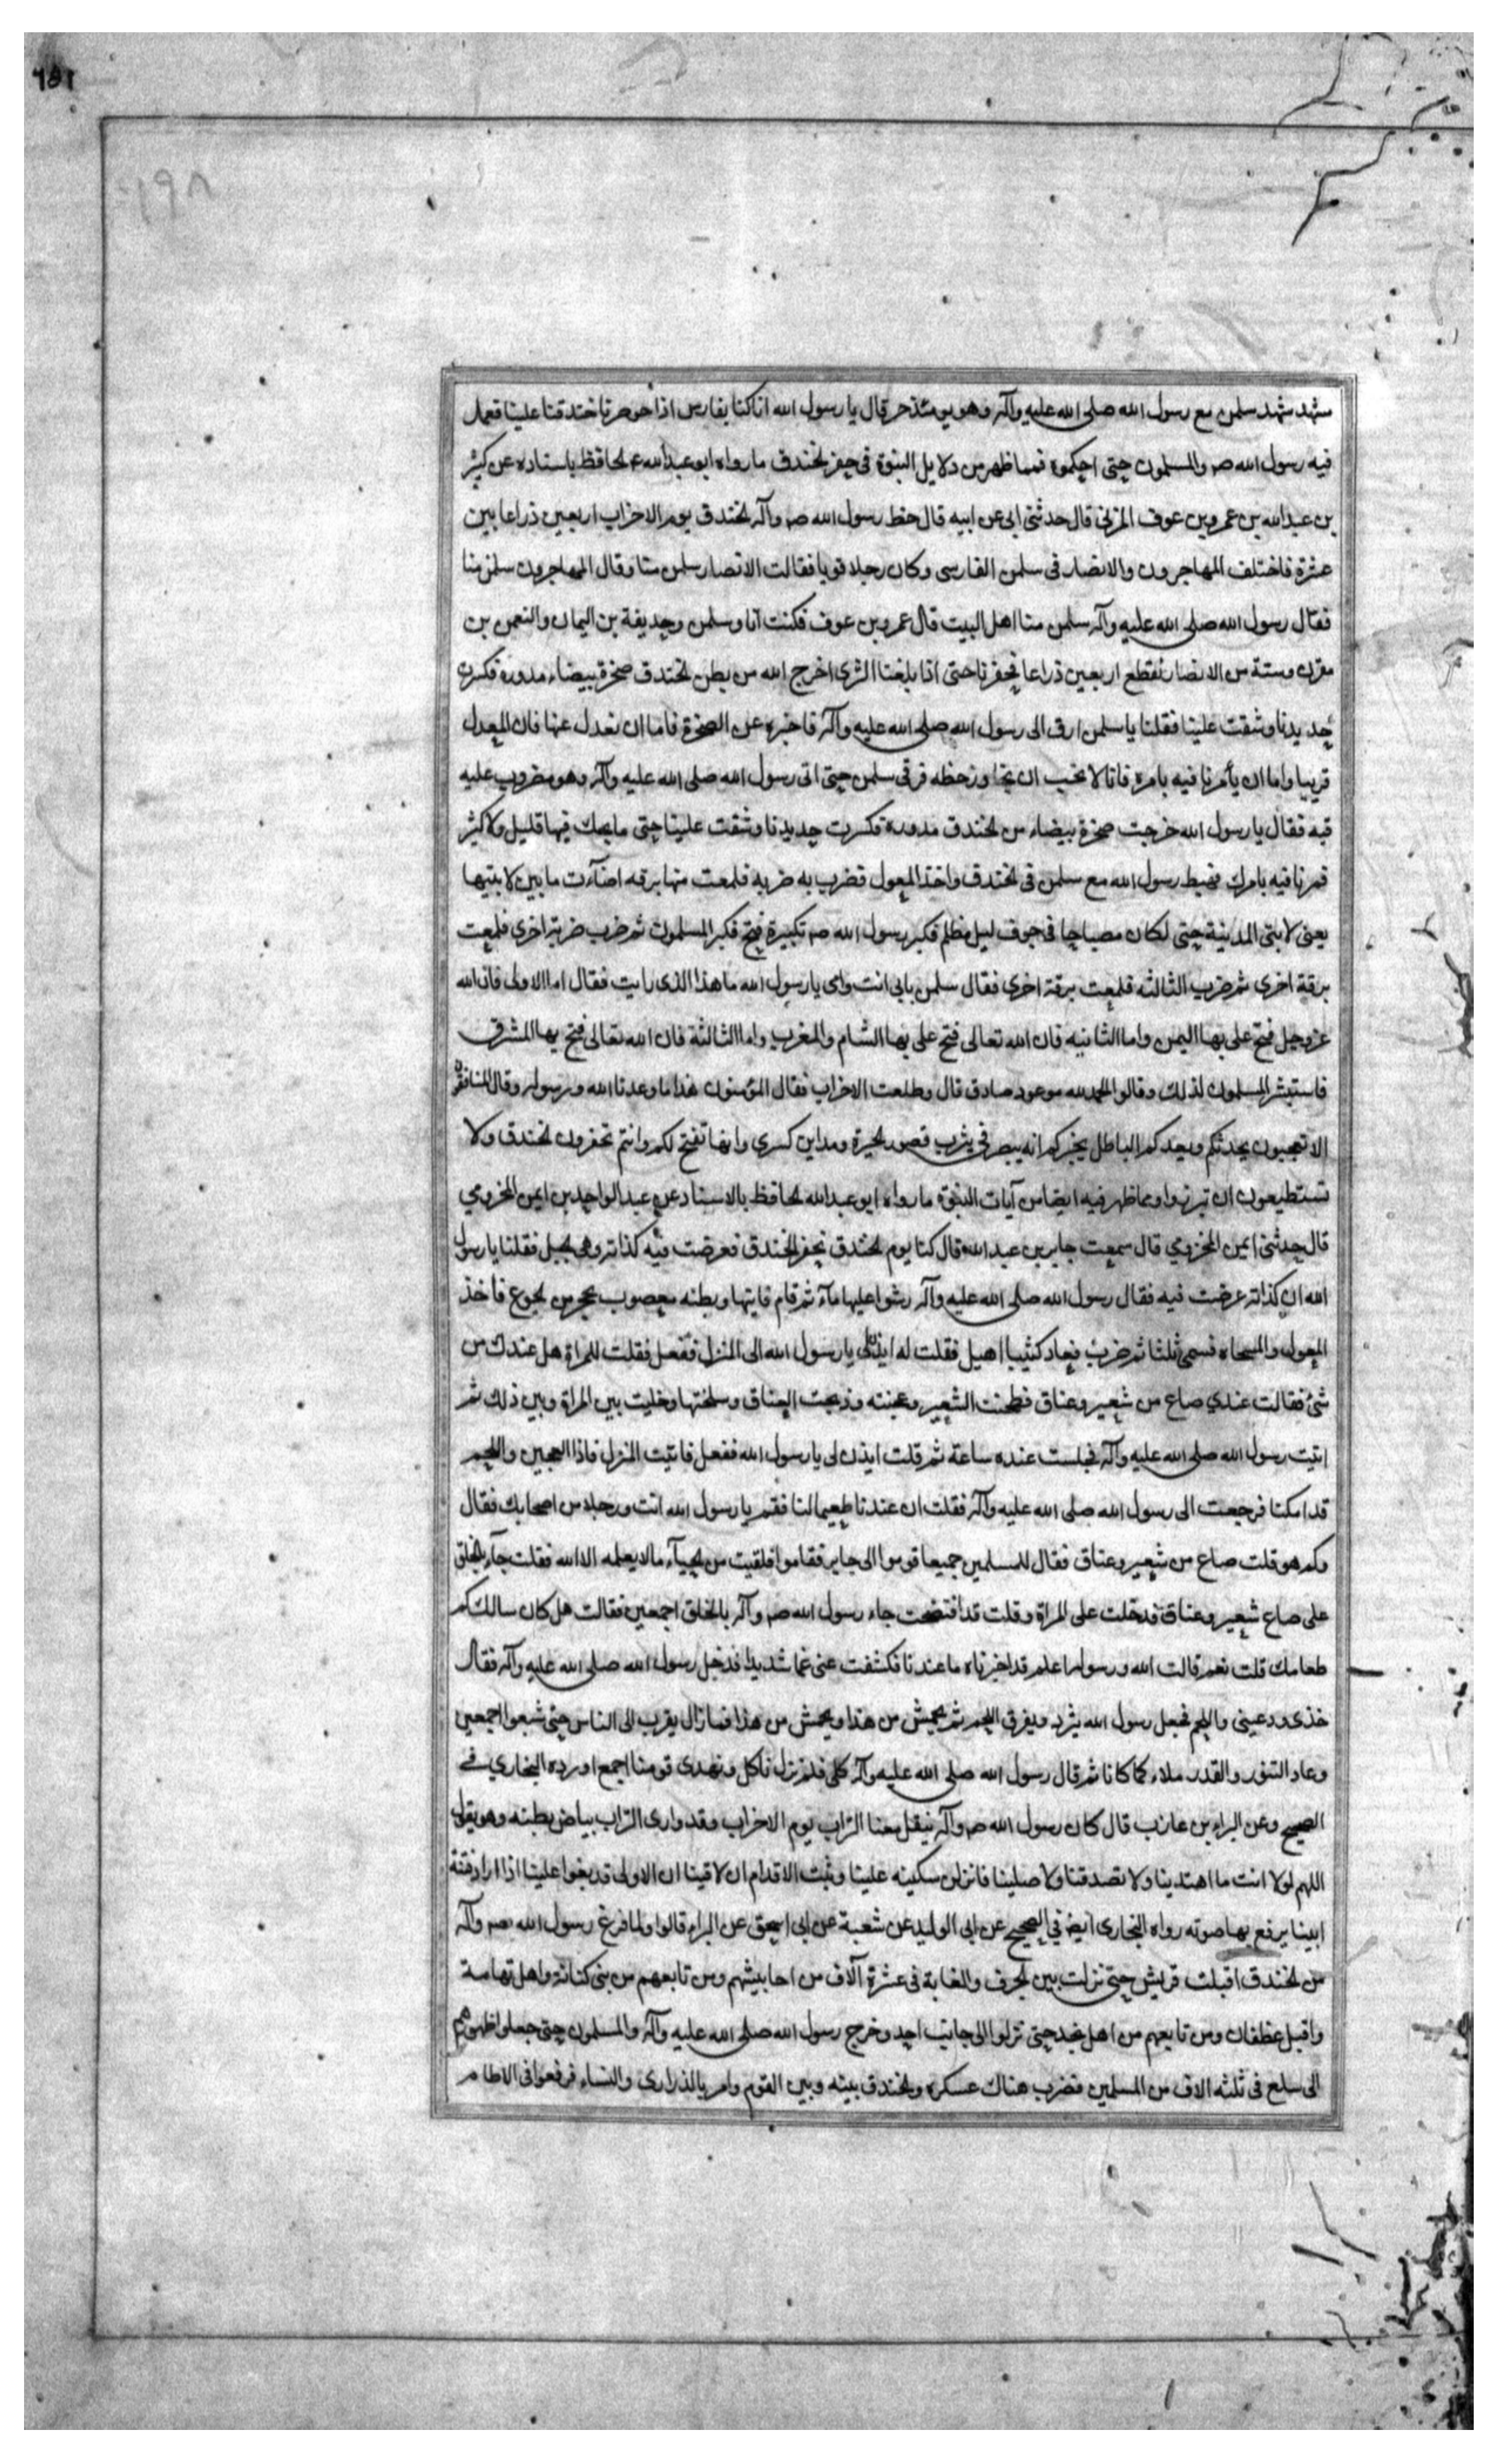 مشهد شهده سلمن مع رسول الله صلى الله عليه وآله وهو يومئذ حر قال يا رسول الله انا كنا بفارس اذا حوصرنا خندقنا علينا فعمل
فيه رسول الله صم والمسلمون حتى احكموه فمما ظهر من دلايل النبوة في حفر الخندق ما رواه ابو عبد الله الحافظ باسناده عن كثير
بن عبد الله بن عمرو بن عوف المزني قال حدثني ابي عن ابيه قال خط رسول الله صم وآله الخندق يوم الاحزاب اربعين ذراعا بين
عشرة فاختلف المهاجرون والانصار في سلمن الفارسي وكان رجلا قويا فقالت الانصار سلمن منا وقال المهاجرون سلمن منا
فقال رسول الله صلى الله عليه وآله سلمن منا اهل البيت قال عمرو بن عوف فكنت انا وسلمن وحذيفة بن اليمان والنعمن بن
مقرن وستة من الانصار نقطع اربعين ذراعا فحفرنا حتى اذا بلغنا الثرى اخرج الله من بطن الخندق صخرة بيضاء مدورة فكسرت
حديدنا وشقت علينا فقلنا يا سلمن ارق الى رسول الله صلى الله عليه وآله فاخبره عن الصخرة فاما ان نعدل عنها فان المعدل
قريب واما ان يأمرنا فيه بامره فانا لا نحب ان نجاوز خطه فرقى سلمن حتى اتى رسول الله صلى الله عليه وآله وهو مضروب عليه
قبه فقال يا رسول الله خرجت صخرة بيضاء من الخندق مدورة فكسرت حديدنا وشقت علينا حتى ما يحك فيها قليل ولا كثير
فمرنا فيه بامرك فهبط رسول الله مع سلمن في الخندق واخذ المعول فضرب به ضربه فلمعت منها برقه اضآءت ما بين لابتيها
يعني لابتي المدينة حتى لكان مصباحا في جوف ليل مظلم فكبر رسول الله صم تكبيرة فتح فكبر المسلمون ثم ضرب ضربة اخرى فلمعت
برقة اخرى ثم ضرب الثالثه فلمعت برقة اخرى فقال سلمن بابي انت وامي يا رسول الله ما هذا الذي رايت فقال اما الاولى فان الله
عز وجل فتح علي بها اليمن واما الثانيه فان الله تعالى فتح علي بها الشام والمغرب واما الثالثة فان الله تعالى فتح بها المشرق
فاستبشر المسلمون لذلك وقالوا الحمد لله موعود صادق قال وطلعت الاحزاب فقال المؤمنون هذا ما وعدنا الله ورسوله وقال المنافقون
الا تعجبون يحدثكم ويعدكم الباطل يخبركم انه يبصر في يثرب قصور الحيرة ومداين كسرى وانها تفتح لكم وانتم تحفرون الخندق ولا
تستطيعون ان تبرزوا ومما ظهر فيه ايضا من آيات النبوة ما رواه ابو عبد الله الحافظ بالاسناد عن عبد الواحد بن ايمن المخزومي
قال حدثني ايمن المخزومي قال سمعت جابر بن عبد الله قال كنا يوم الخندق نحفر الخندق فعرضت فيه كذانة وهي الجبل فقلنا يا رسول
الله ان كذانة عرضت فيه فقال رسول الله صلى الله عليه وآله رشوا عليها مآء ثم قام فاتيها وبطنه معصوب بحجر من الجوع فاخذ
المعول والمسحاه فسمى ثلثا ثم ضرب فعاد كثيبا اهيل فقلت له ايذن لي يا رسول الله الى المنزل ففعل فقلت للمراة هل عندك من
شئ فقالت عندي صاع من شعير وعناق فطحنت الشعير وعجنته وذبحت العناق وسلختها وخليت بين المراة وبين ذلك ثم
اتيت رسول الله صلى الله عليه وآله فجلست عنده ساعة ثم قلت ايذن لي يا رسول الله ففعل فاتيت المنزل فاذا العجين واللحم
قد امكنا فرجعت الى رسول الله صلى الله عليه وآله فقلت ان عندنا طعيما لنا فقم يا رسول الله انت ورجلا من اصحابك فقال
وكم هو قلت صاع من شعير وعناق فقال للمسلمين جميعا قوموا الى جابر فقاموا فلقيت من الحيآء ما لا يعلمه الا الله فقلت جآء بالخلق
على صاع شعير وعناق فدخلت على المراة وقلت قد افتضحت جاء رسول الله صم وآله بالخلق اجمعين فقالت هل كان سالك كم
طعامك قلت نعم قالت الله ورسوله اعلم قد اخبرناه ما عندنا فكشفت عني غما شديدا فدخل رسول الله صلى الله عليه وآله فقال
خذي ودعيني واللحم فجعل رسول الله يثرد ويفرق اللحم ثم يحمش من هذا ويحمش من هذا فما زال يقرب الى الناس حتى شبعوا اجمعين
وعاد التنور والقدر ملاء كما كانا ثم قال رسول الله صلى الله عليه وآله كلي فلم نزل ناكل ونهدى قومنا اجمع اورده البخاري في
الصحيح وعن البراء بن عازب قال كان رسول الله صم وآله ينقل معنا التراب يوم الاحزاب وقد وارى التراب بياض بطنه وهو يقول
اللهم لولا انت ما اهتدينا ولا تصدقنا ولا صلينا فانزلن سكينه علينا وثبت الاقدام ان لاقينا ان الاولى قد بغوا علينا اذا ارادوا فتنة
ابينا يرفع بها صوته رواه البخاري ايضا في الصحيح عن ابي الوليد عن شعبة عن ابي اسحق عن البراء قالوا ولما فرغ رسول الله صم وآله
من الخندق اقبلت قريش حتى نزلت بين الجرف والغابة في عشرة آلاف من احابيشهم ومن تابعهم من بني كنانة واهل تهامة
واقبل غطفان ومن تابعهم من اهل نجد حتى نزلوا الى جانب احد وخرج رسول الله صلى الله عليه وآله والمسلمون حتى جعلوا ظهورهم
الى سلع في ثلثه الاف من المسلمين فضرب هناك عسكره والخندق بينه وبين القوم وامر بالذراري والنساء فرفعوا في الاطام